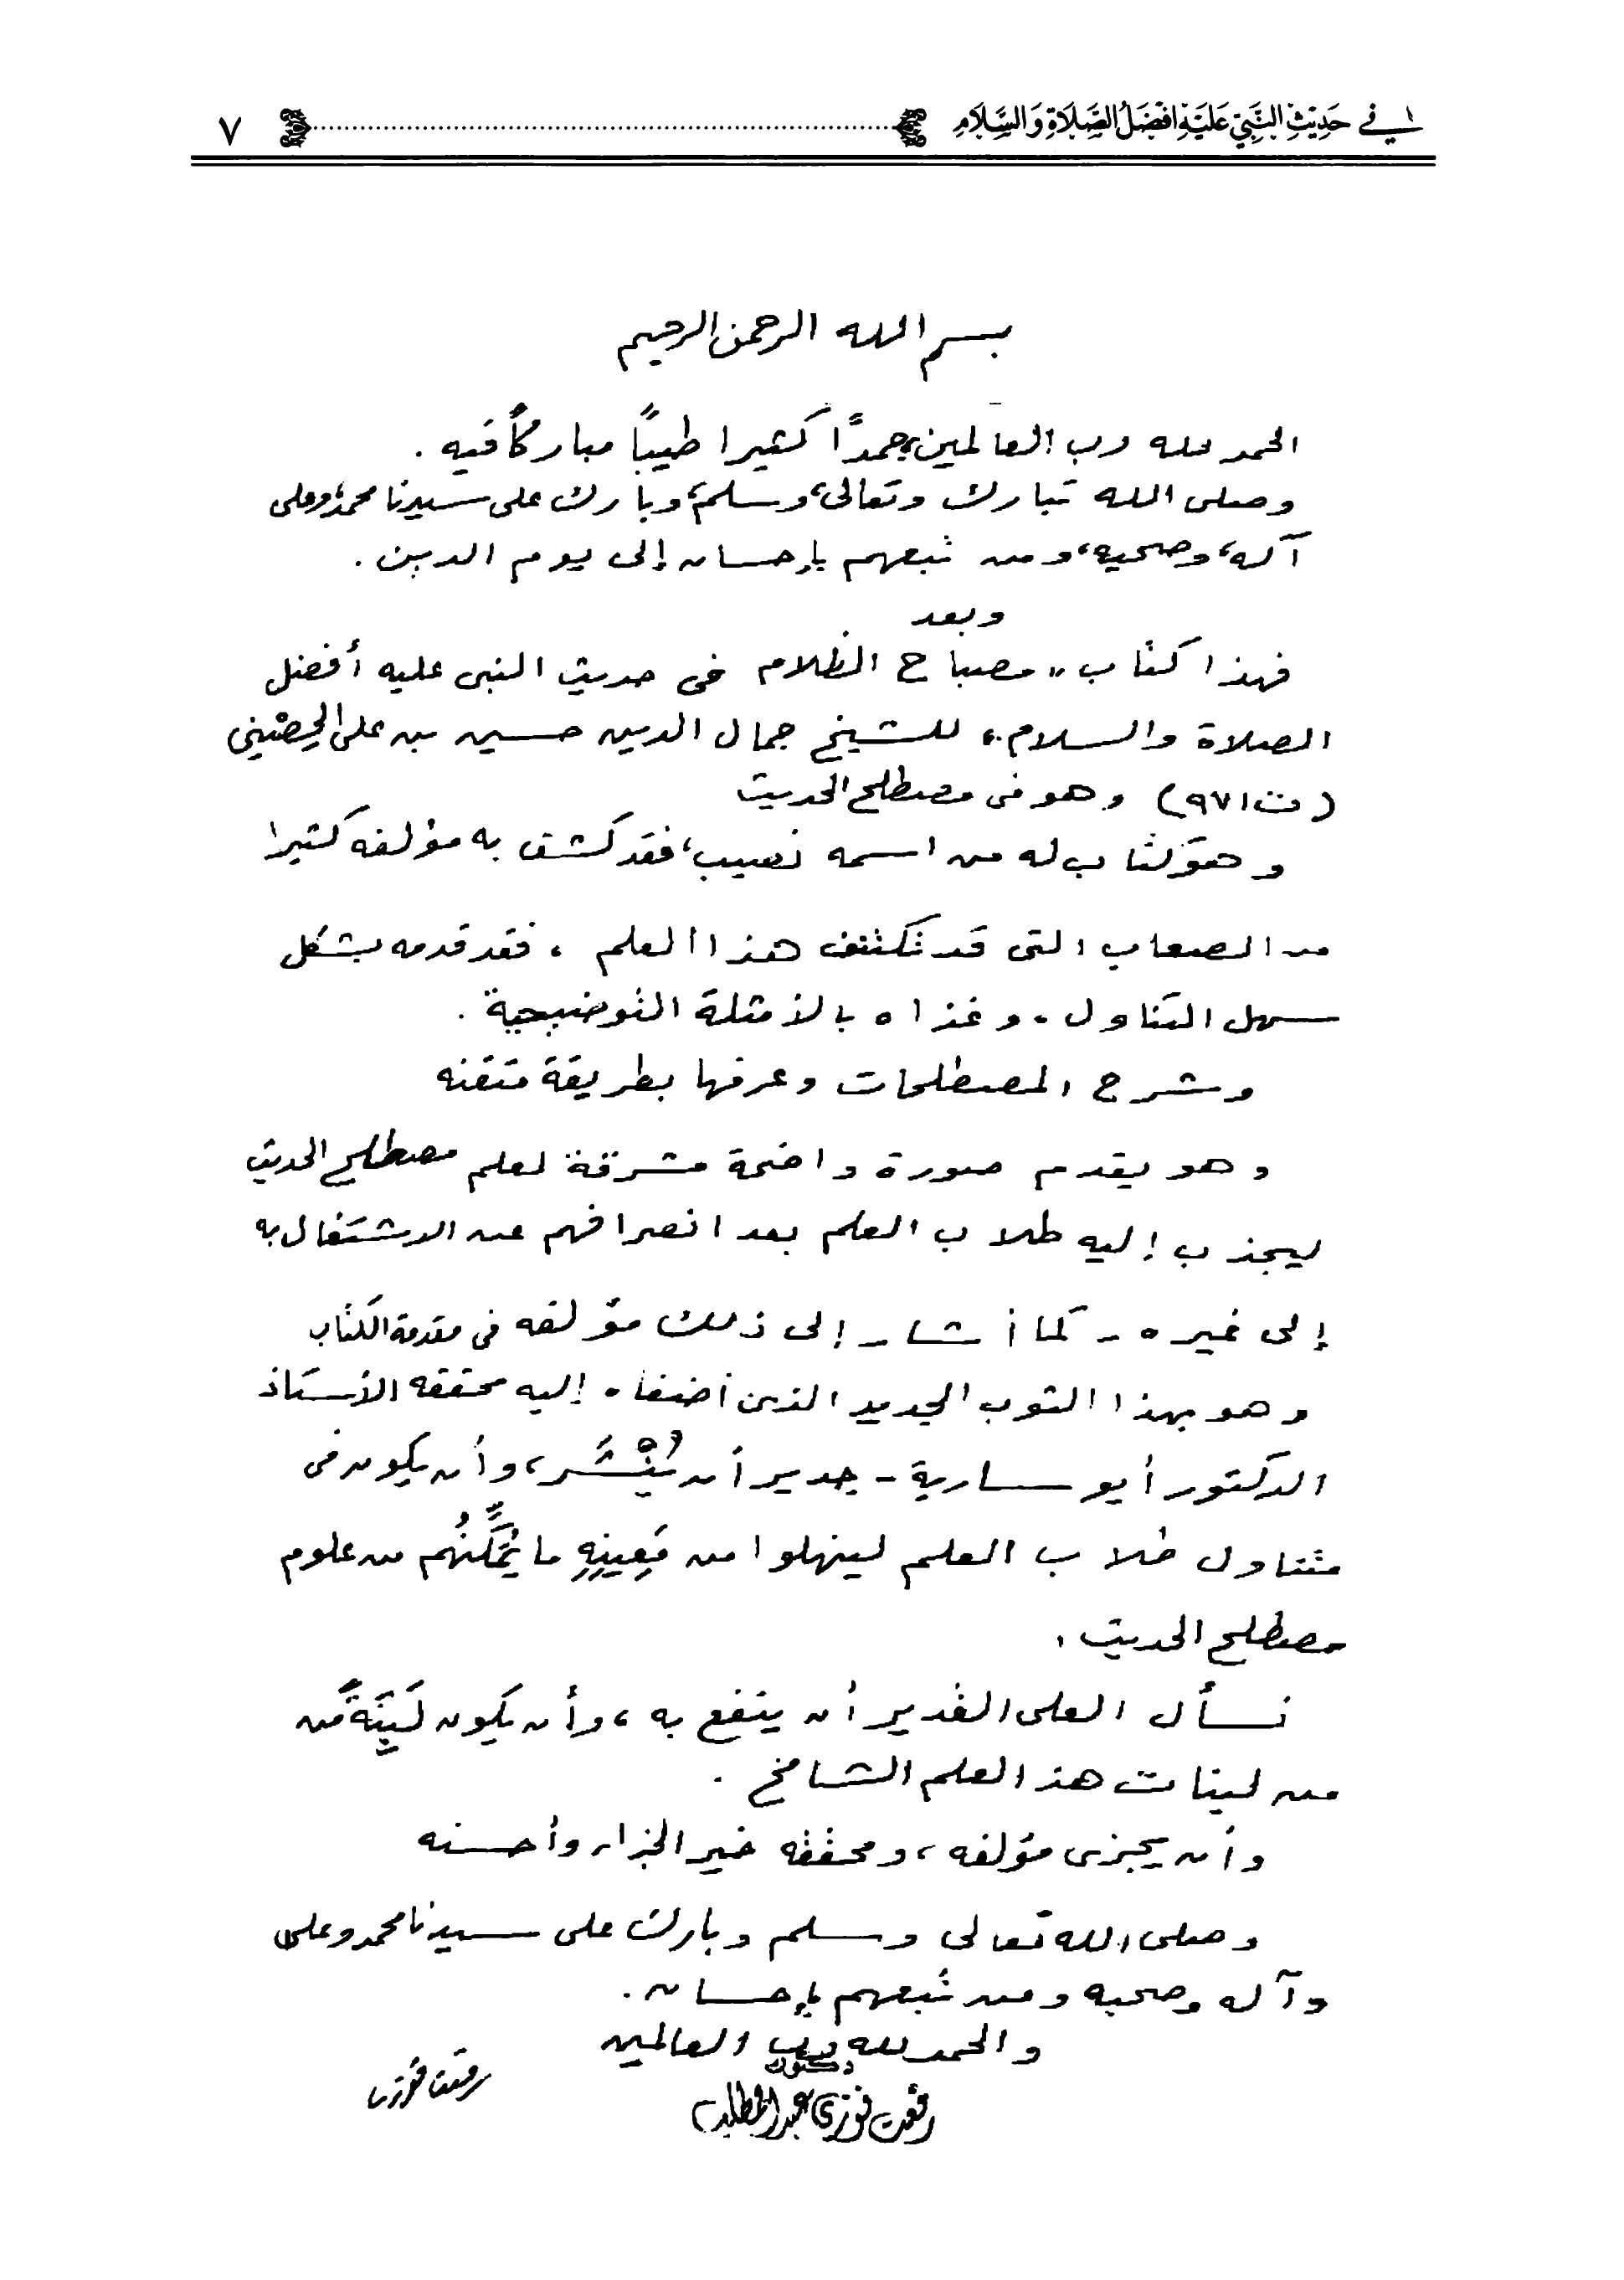 في حَدِيْثِ النَّبِيِّ عَلَيْهِ افْضَلُ الصَّلَاةِ وَالسَّلَامِ ٧
بسم الله الرحمن الرحيم
الحمد لله رب العالمين، حمدًا كثيرا طيبًا مباركًا فيه .
وصلى الله تبارك وتعالى، وسلم، وبارك على سيدنا محمد، وعلى
آله، وصحبه، ومن تبعهم بإحسان إلى يوم الدين .
وبعد
فهذا كتاب " مصباح الظلام فى حديث النبى عليه أفضل
الصلاة والسلام " للشيخ جمال الدين حسين بن على الحِصْنِيى
(ت ٩٧١) وهو فى مصطلح الحديث
وهو كتاب له من اسمه نصيب، فقد كشف به مؤلفه كثيرا
من الصعاب التى قد تكتنف هذا العلم ، فقد قدمه بشكل
سهل التناول ، وغذاه بالأمثلة التوضيحية .
وشرح المصطلحات وعرفها بطريقة متقنه
وهو يقدم صورة واضحة مشرقة لعلم مصطلح الحديث
ليجذب إليه طلاب العلم بعد انصرافهم عن الاشتغال به
إلى غيره - كما أشار إلى ذلك مؤلفه فى مقدمة الكتاب
وهو بهذا الثوب الجديد الذى أضفاه إليه محققه الأستاذ
الدكتور أبو سارية - جدير أن يُنْشَر، وأن يكون فى
متناول طلاب العلم لينهلوا من مَعِينِهِ ما يُمَكِّنُهم من علوم
مصطلح الحديث .
نسأل العلى القدير أن ينفع به ، وأن يكون لَبِنَةً من
من لبنات هذ العلم الشامخ .
وأن يجزى مؤلفه ، ومحققه خير الجزاء وأحسنه
وصلى الله تعالى وسلم وبارك على سيدنا محمد وعلى
وآله وصحبه ومن تبعهم بإحسان .
والحمد لله رب العالمين
دكتور
رفعت فوزي عبد المطلب
رفعت فوزى